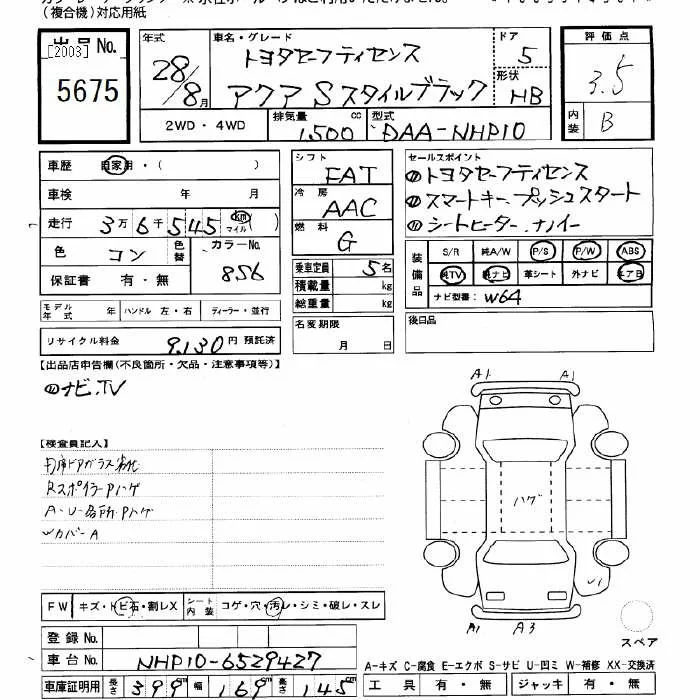 (複合機)対応用紙
出品No.
[2003]
5675
年式
28/8月
車名・グレード
トヨタセーフティセンス
アクア Sスタイルブラック
ドア
5
形状
HB
2WD・4WD
排気量
1,500cc
型式
DAA-NHP10
評価点
3.5
内装
B
車歴 自家用・( )
車検 年 月
走行 3万6千545 km マイル( )
色 コン
色替
カラーNo.
856
保証書 有・無
モデル年式 年
ハンドル 左・右
ディーラー・並行
リサイクル料金 9,130円 預託済
シフト
FAT
冷房
AAC
燃料
G
乗車定員 5名
積載量 kg
総重量 kg
名変期限
月 日
セールスポイント
トヨタセーフティセンス
スマートキー、プッシュスタート
シートヒーター、ナノイー
装備品
S/R 純A/W P/S P/W ABS
純TV 純ナビ 革シート 外ナビ エアB
ナビ型番: W64
後日品
【出品店申告欄(不良箇所・欠品・注意事項等)】
ナビ、TV
【検査員記入】
Rスポイラー Pハゲ
A・U・各所・Pハゲ
Wカバー A
A1
A1
ハゲ
A1
A3
スペア
FW キズ・トビ石・割レX
シート内装 コゲ・穴・汚レ・シミ・破レ・スレ
登録No.
車台No. NHP10-6529427
車庫証明用 長さ 399cm 幅 169cm 高さ 145cm
A-キズ C-腐食 E-エクボ S-サビ U-凹ミ W-補修 XX-交換済
工具 有・無 ジャッキ 有・無